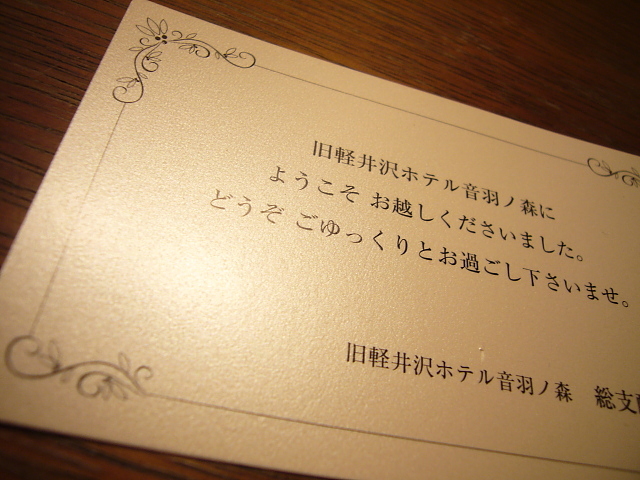 旧軽井沢ホテル音羽ノ森に
ようこそ お越しくださいました。
どうぞ ごゆっくりとお過ごし下さいませ。
旧軽井沢ホテル音羽ノ森 総支